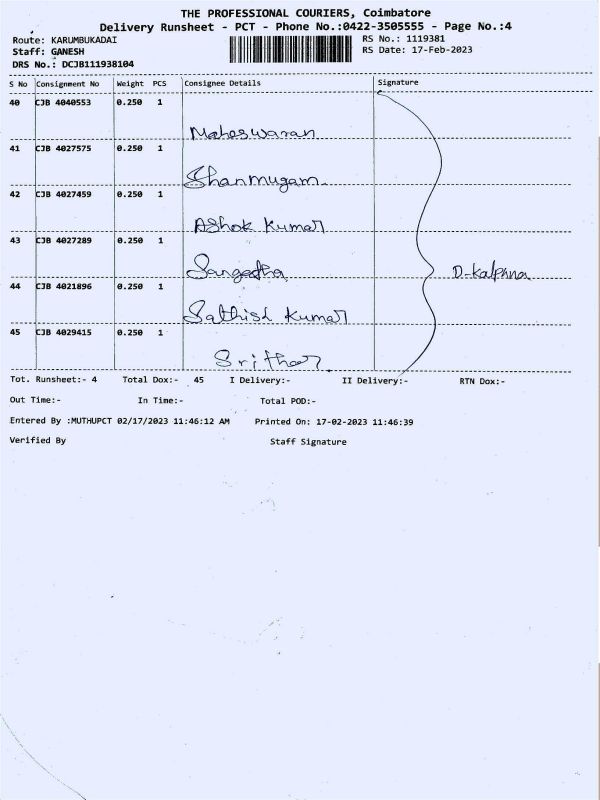 THE PROFESSIONAL COURIERS, Coimbatore
Delivery Runsheet - PCT - Phone No.:0422-3505555 - Page No.:4
Route: KARUMBUKADAI RS No.: 1119381
Staff: GANESH RS Date: 17-Feb-2023
DRS No.: DCJB111938104
S No Consignment No Weight PCS Consignee Details Signature
40 CJB 4040553 0.250 1
Maheswaran
41 CJB 4027575 0.250 1
Shanmugam
42 CJB 4027459 0.250 1
Ashok Kumar
43 CJB 4027289 0.250 1
Sangeetha D-Kalphna
44 CJB 4021896 0.250 1
Sathish Kumar
45 CJB 4029415 0.250 1
Srithar
Tot. Runsheet:- 4 Total Dox:- 45 I Delivery:- II Delivery:- RTN Dox:-
Out Time:- In Time:- Total POD:-
Entered By :MUTHUPCT 02/17/2023 11:46:12 AM Printed On: 17-02-2023 11:46:39
Verified By Staff Signature